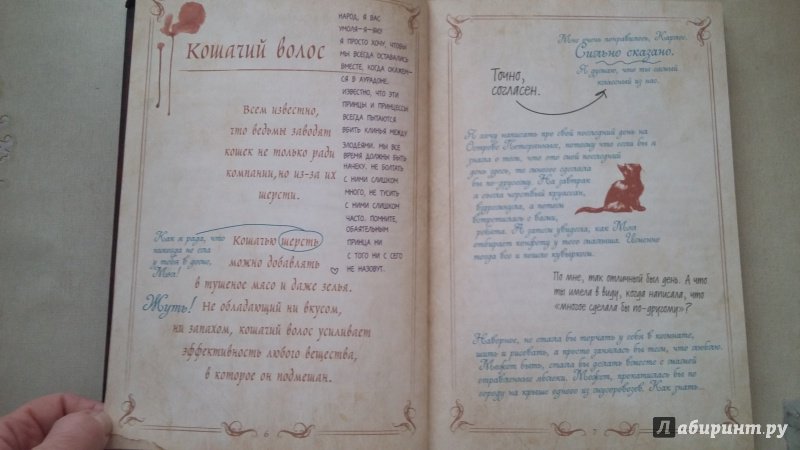 Кошачий волос
НАРОД, Я ВАС
УМОЛЯ-Я-ЯЮ!
Я ПРОСТО ХОЧУ, ЧТОБЫ
МЫ ВСЕГДА ОСТАВАЛИСЬ
ВМЕСТЕ, КОГДА ОКАЖЕМ-
СЯ В АУРАДОНЕ.
ИЗВЕСТНО, ЧТО ЭТИ
ПРИНЦЫ И ПРИНЦЕССЫ
ВСЕГДА ПЫТАЮТСЯ
ВБИТЬ КЛИНЬЯ МЕЖДУ
ЗЛОДЕЯМИ. МЫ ВСЕ
ВРЕМЯ ДОЛЖНЫ БЫТЬ
НАЧЕКУ. НЕ БОЛТАТЬ
С НИМИ СЛИШКОМ
МНОГО, НЕ ТУСИТЬ
С НИМИ СЛИШКОМ
ЧАСТО. ПОМНИТЕ,
ОБАЯТЕЛЬНЫМ
ПРИНЦА НИ
С ТОГО НИ С СЕГО
НЕ НАЗОВУТ.
Всем известно,
что ведьмы заводят
кошек не только ради
компании, но и из-за их
шерсти.
Как я рада, что
никогда не ела
у тебя в доме,
Мэл!
Кошачью шерсть
можно добавлять
в тушеное мясо и даже зелья.
Жуть!
Не обладающий ни вкусом,
ни запахом, кошачий волос усиливает
эффективность любого вещества,
в которое он подмешан.
6
Мне очень понравилось, Карлос.
Сильно сказано.
Я думаю, что ты самый
классный из нас.
Точно,
согласен.
Я хочу написать про свой последний день на
Острове Потерянных, потому что если бы я
знала о том, что это мой последний
день здесь, то многое сделала
бы по-другому. На завтрак
я съела черствый круассан,
вздремнула, а потом
встретилась с вами,
ребята. А затем увидела, как Мэл
отбирает конфету у того малыша. Именно
тогда все и пошло кувырком.
По мне, так отличный был день. А что
ты имела в виду, когда написала, что
«многое сделала бы по-другому»?
Наверное, не стала бы торчать у себя в комнате,
шить и рисовать, а просто занялась бы тем, что люблю.
Может быть, стала бы делать вместе с мамой
отравленные яблоки. Может, прокатилась бы по
городу на крыше одного из мусоровозов. Как знать...
7
Лабиринт.ру